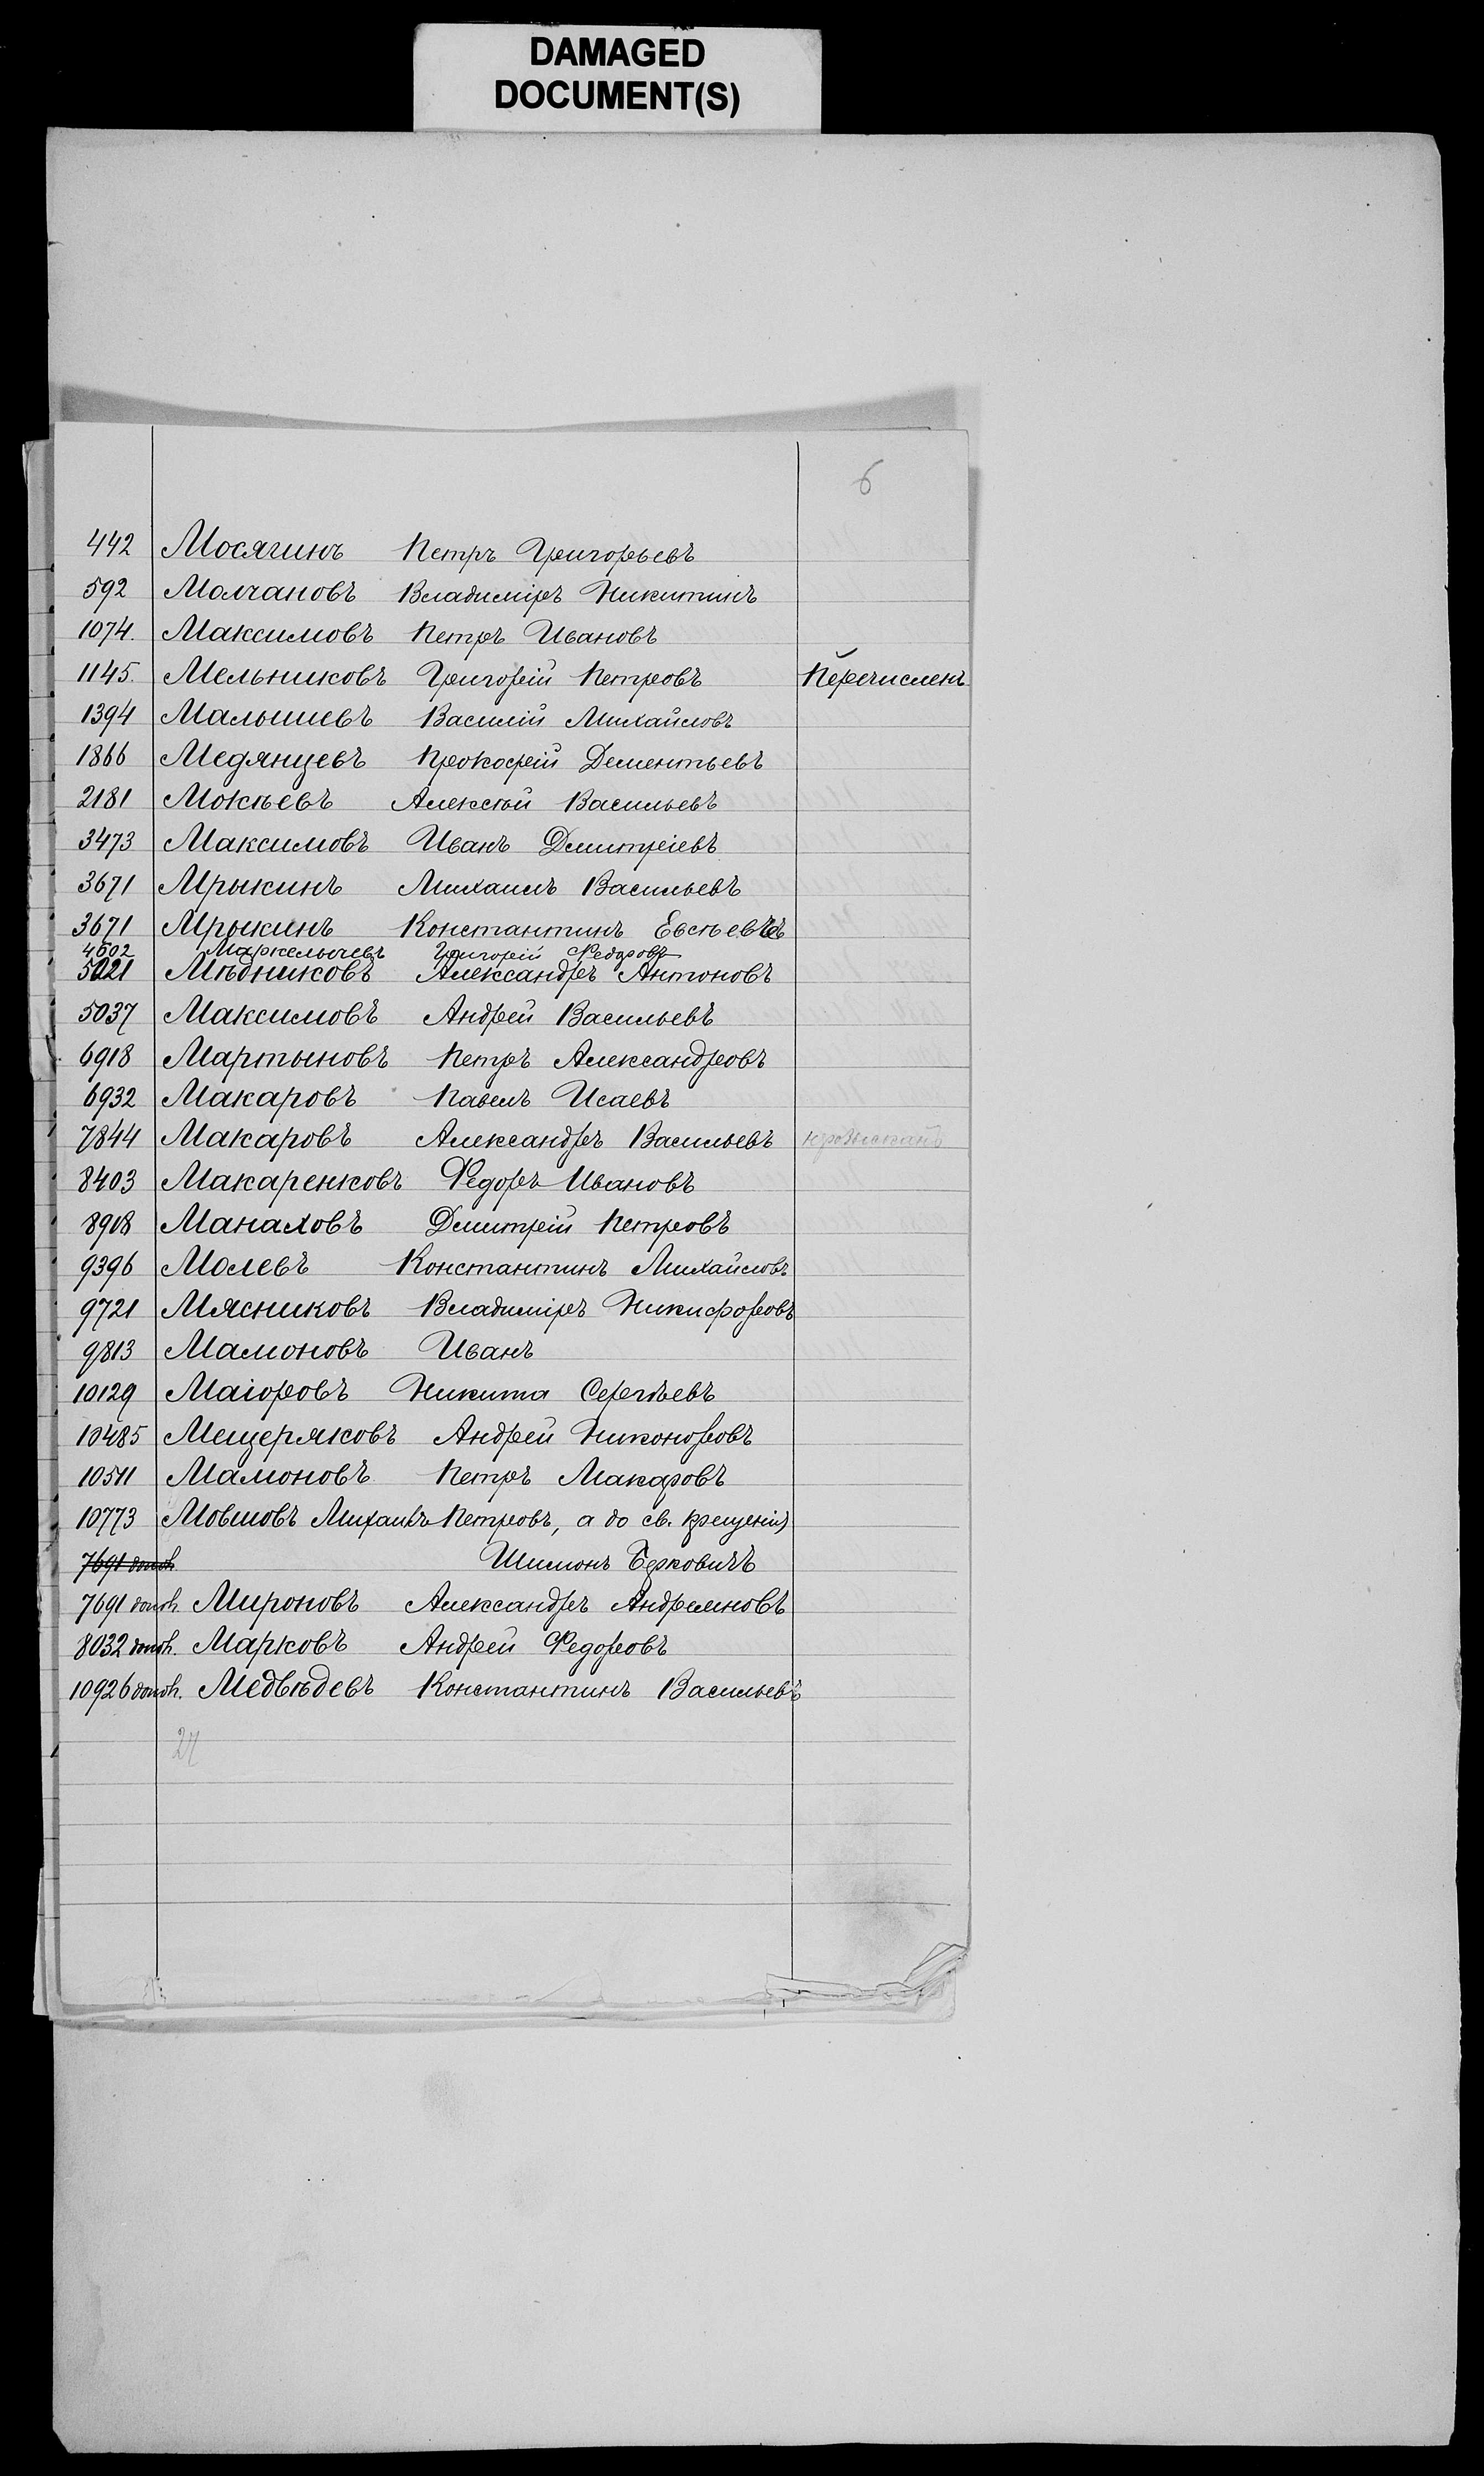 DAMAGED
DOCUMENT(S)
6
442 Мосягинъ Петръ Григорьевъ
592 Молчановъ Владиміръ Никитинъ
1074. Максимовъ Петръ Ивановъ
1145. Мельниковъ Григорій Петровъ Перечисленъ
1394 Малышевъ Василій Михайловъ
1866 Медянцевъ Прокофій Дементьевъ
2181 Мокѣевъ Алексѣй Васильевъ
3473 Максимовъ Иванъ Дмитріевъ
3671 Мрыкинъ Михаилъ Васильевъ
3671 Мрыкинъ Константинъ Евсѣевъ
4602 Маркелычевъ Григорій Федоровъ
5021 Мѣдниковъ Александръ Антоновъ
5037 Максимовъ Андрей Васильевъ
6918 Мартыновъ Петръ Александровъ
6932 Макаровъ Павелъ Исаевъ
7844 Макаровъ Александръ Васильевъ
8403 Макаренковъ Федоръ Ивановъ
8918 Манаховъ Дмитрій Петровъ
9396 Молевъ Константинъ Михайловъ
9721 Мясниковъ Владиміръ Никифоровъ
9813 Мамоновъ Иванъ
10129 Маіоровъ Никита Сергѣевъ
10485 Мещеряковъ Андрей Никоноровъ
10511 Мамоновъ Петръ Макаровъ
10773 Мовшовъ Михаилъ Петровъ, а до св. крещенія
7691 допол. Шимонъ Берковичъ
7691 допол. Мироновъ Александръ Андреяновъ
8032 допол. Марковъ Андрей Федоровъ
10926 допол. Медвѣдевъ Константинъ Васильевъ
27